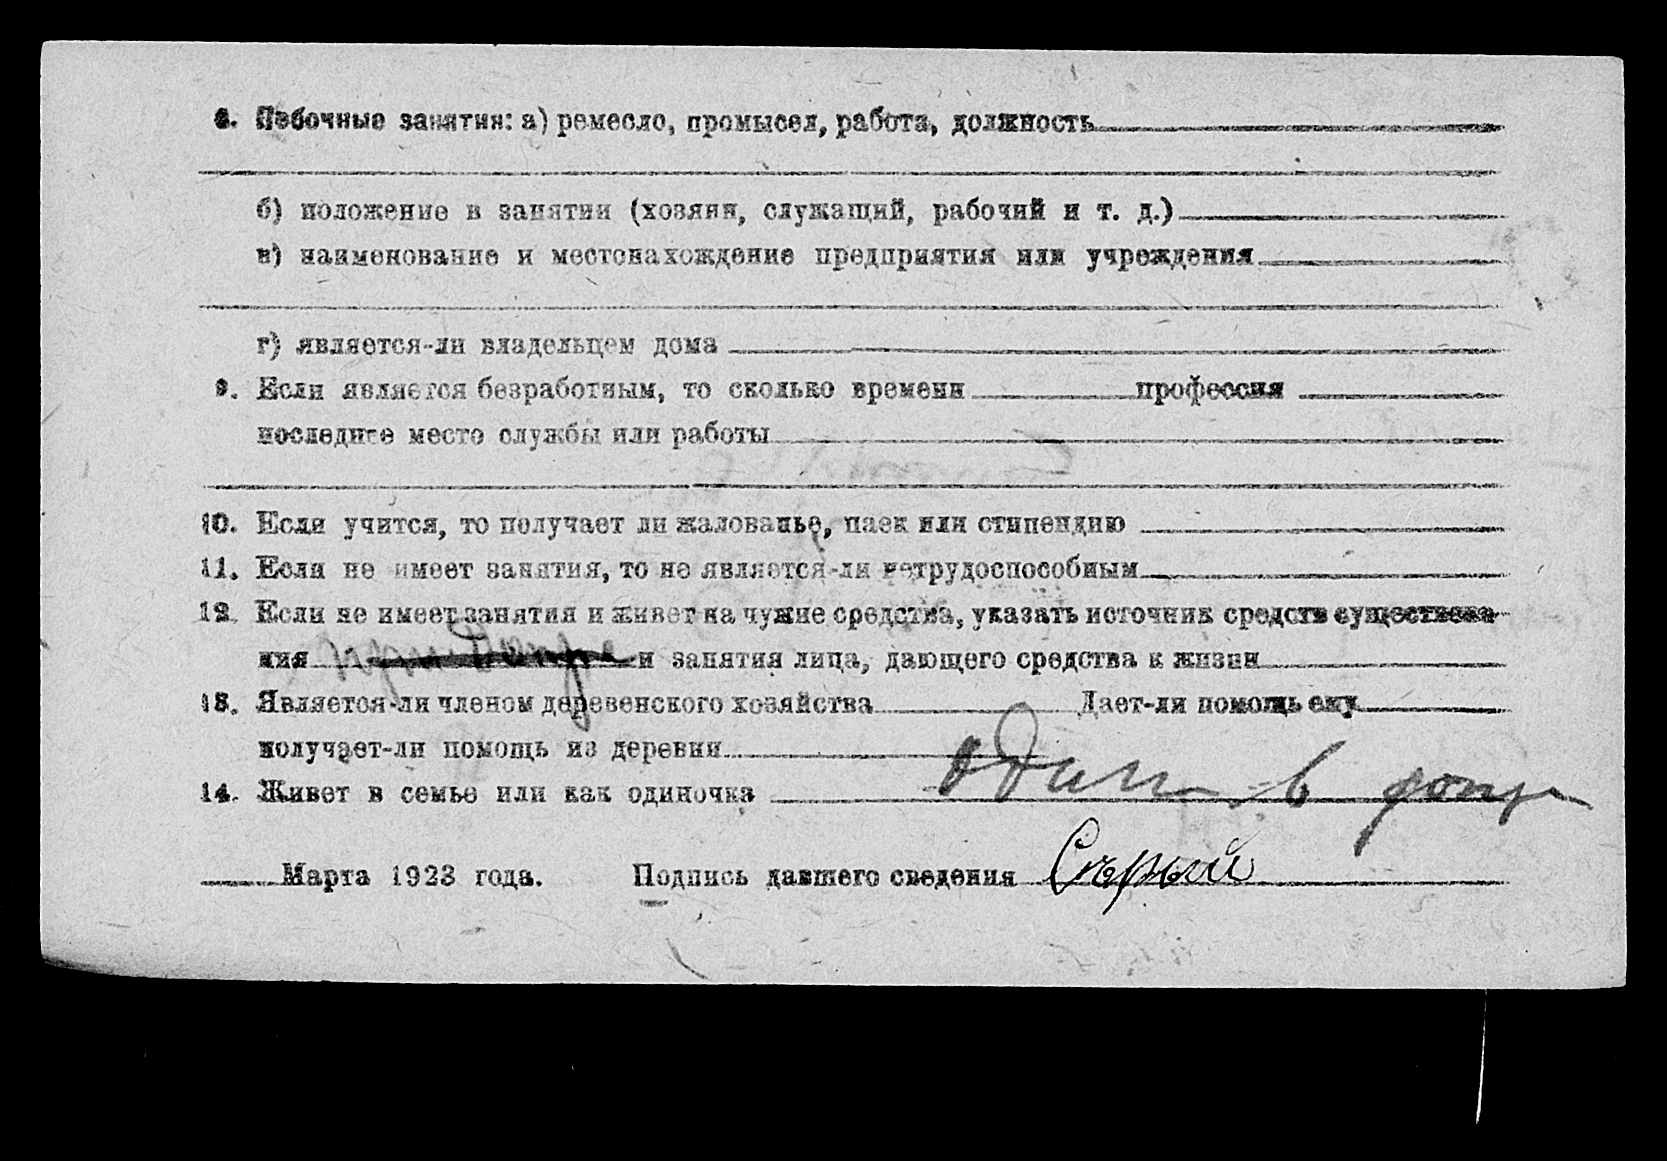 8. Побочные занятия: а) ремесло, промысел, работа, должность
б) положение в занятии (хозяин, служащий, рабочий и т. д.)
в) наименование и местонахождение предприятия или учреждения
г) является-ли владельцем дома
9. Если является безработным, то сколько времени профессия
последнее место службы или работы
10. Если учится, то получает ли жалованье, паек или стипендию
11. Если не имеет занятия, то не является-ли нетрудоспособным
12. Если не имеет занятия и живет на чужие средства, указать источник средств существова-
ния и занятия лица, дающего средства к жизни
13. Является-ли членом деревенского хозяйства Дает-ли помощь ему
получает-ли помощь из деревни
14. Живет в семье или как одиночка один в
Марта 1923 года. Подпись давшего сведения